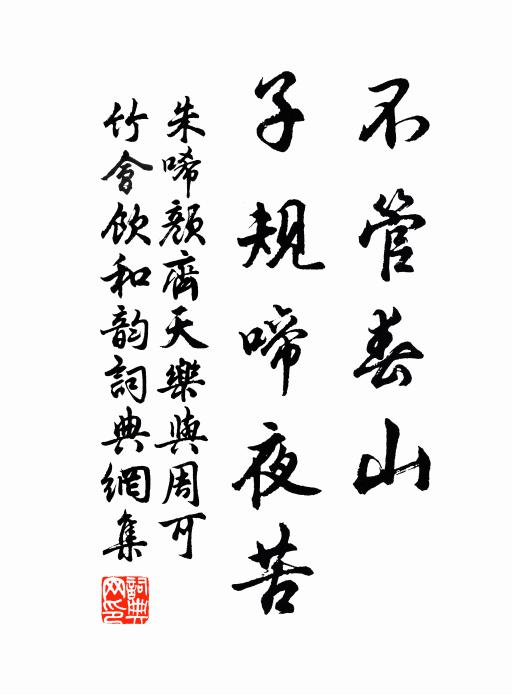 不管春山
子規啼夜苦
朱唏顏齊天樂與周可
竹會飲和韵詞典網集
詞典網印